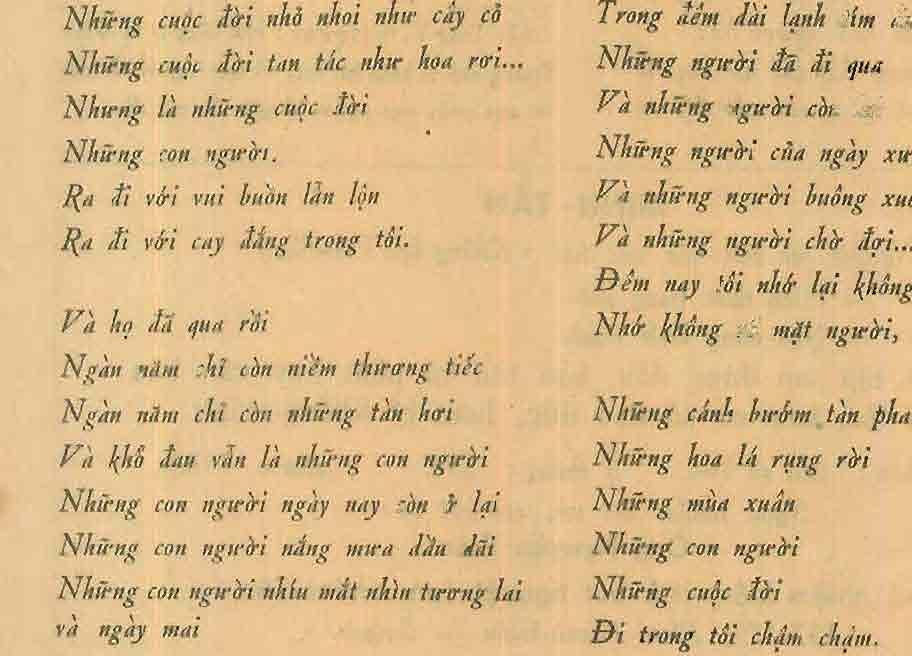 Những cuộc đời nhỏ nhoi như cây cỏ
Những cuộc đời tan tác như hoa rơi...
Nhưng là những cuộc đời
Những con người.
Ra đi với vui buồn lẫn lộn
Ra đi với cay đắng trong tôi.
Và họ đã qua rồi
Ngàn năm chỉ còn niềm thương tiếc
Ngàn năm chỉ còn những tàn hơi
Và khổ đau vẫn là những con người
Những con người ngày nay còn ở lại
Những con người nắng mưa dầu dãi
Những con người nhíu mắt nhìn tương lai
và ngày mai
Trong đêm dài lạnh
Những người đã đi qua
Và những người còn
Những người của ngày
Và những người buông
Và những người chờ đợi...
Đêm nay tôi nhớ lại không
Nhớ không mặt người,
Những cánh bướm tàn
Những hoa lá rụng rời
Những mùa xuân
Những con người
Những cuộc đời
Đi trong tôi chậm chậm.